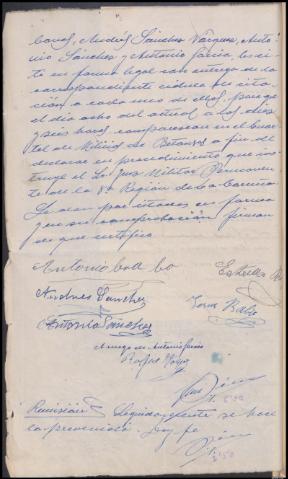 Andrés Sánchez Vázquez, Anto-
nio Sánchez y Antonio García, les ci-
to en forma legal con entrega de la
correspondiente cédula de cita-
ción a cada uno de ellos, para que
el día ocho del actual a las diez
y seis horas comparezcan en el cuar-
tel de Milicias de Betanzos a fin de
declarar en procedimiento que ins-
truye el Sr Juez Militar Permanente
de la 8ª Región de la Coruña
Se dan por citados en forma
y en su comprobación firman
de que certifico
Antonio
Andrés Sanchez
Antonio Sánchez
A ruego de Antonio García
Rafael
Remisión Seguidamente se hace
la prevenida. Doy fe